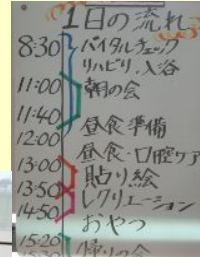 1日の流れ
8:30 バイタルチェック
リハビリ、入浴
11:00 朝の会
11:40
12:00 昼食準備
昼食・口腔ケア
13:00 貼り絵
13:50 レクリエーション
14:50 おやつ
15:20 帰りの会
15:30